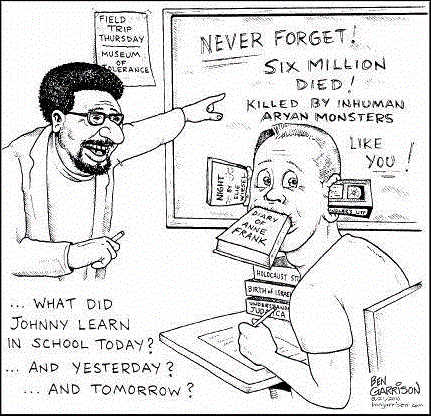 FIELD
TRIP
THURSDAY
MUSEUM
OF
TOLERANCE
NEVER FORGET!
SIX MILLION
DIED!
KILLED BY INHUMAN
ARYAN MONSTERS
LIKE
YOU!
NIGHT
BY
ELIE
WIESEL
DIARY
OF
ANNE
FRANK
HOLOCAUST
BIRTH OF ISRAEL
JUDAICA
... WHAT DID
JOHNNY LEARN
IN SCHOOL TODAY?
... AND YESTERDAY?
... AND TOMORROW?
BEN
GARRISON